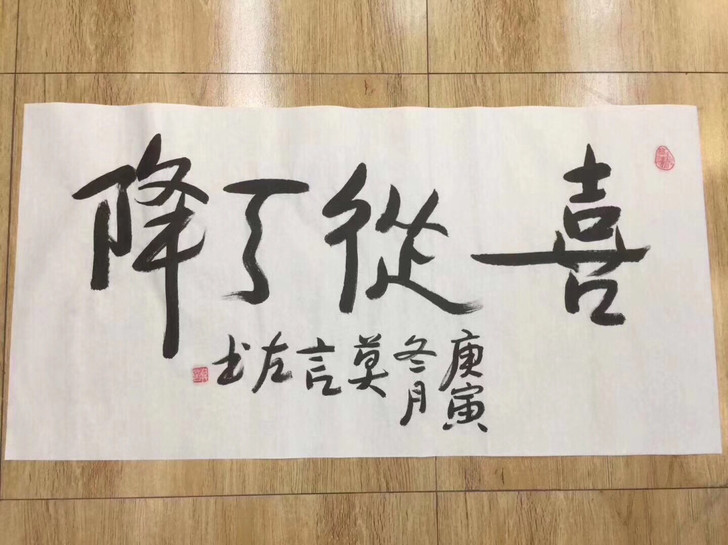 喜從天降
庚寅冬月莫言左书